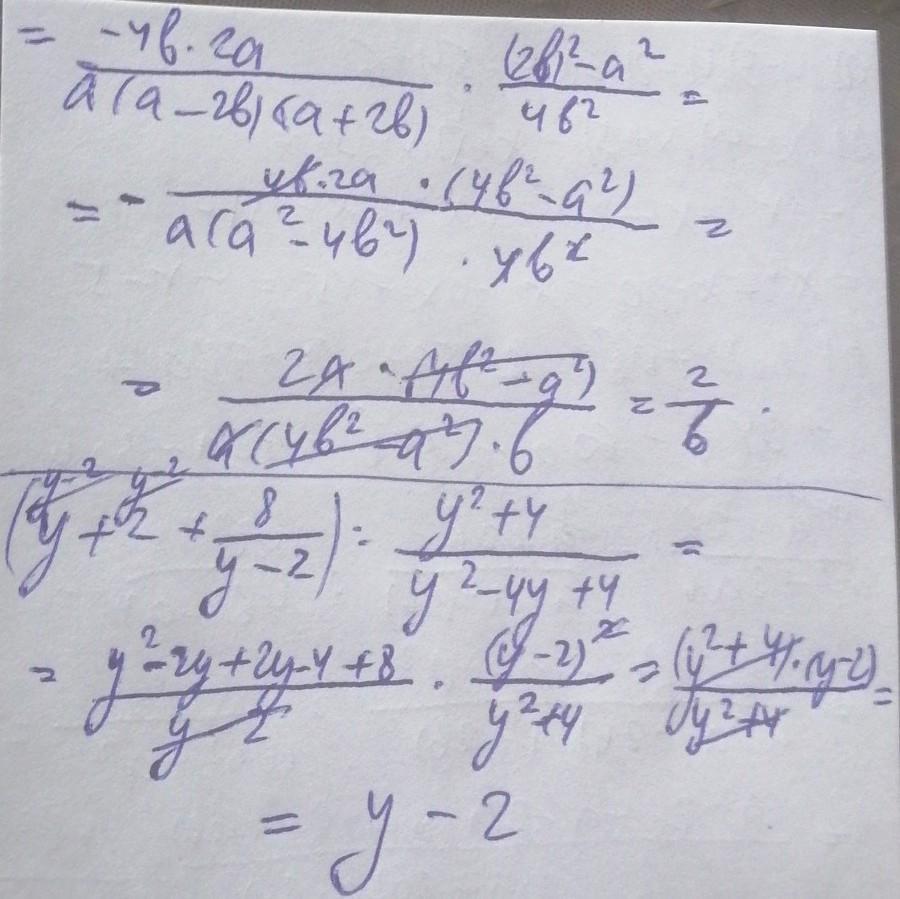 = -4в·2a / a(a-2в)(a+2в) · (2в)²-a² / 4в² =
= - 4в·2a·(4в²-a²) / a(a²-4в²)·4в² =
= 2a·(4в²-a²) / a(4в²-a²)·в = 2/в.
y-2 y-2
(y+2+8/(y-2)) : y²+4 / y²-4y+4 =
= y²-2y+2y-4+8 / y-2 · (y-2)² / y²+4 = (y²+4)·(y-2) / y²+4 =
= y-2